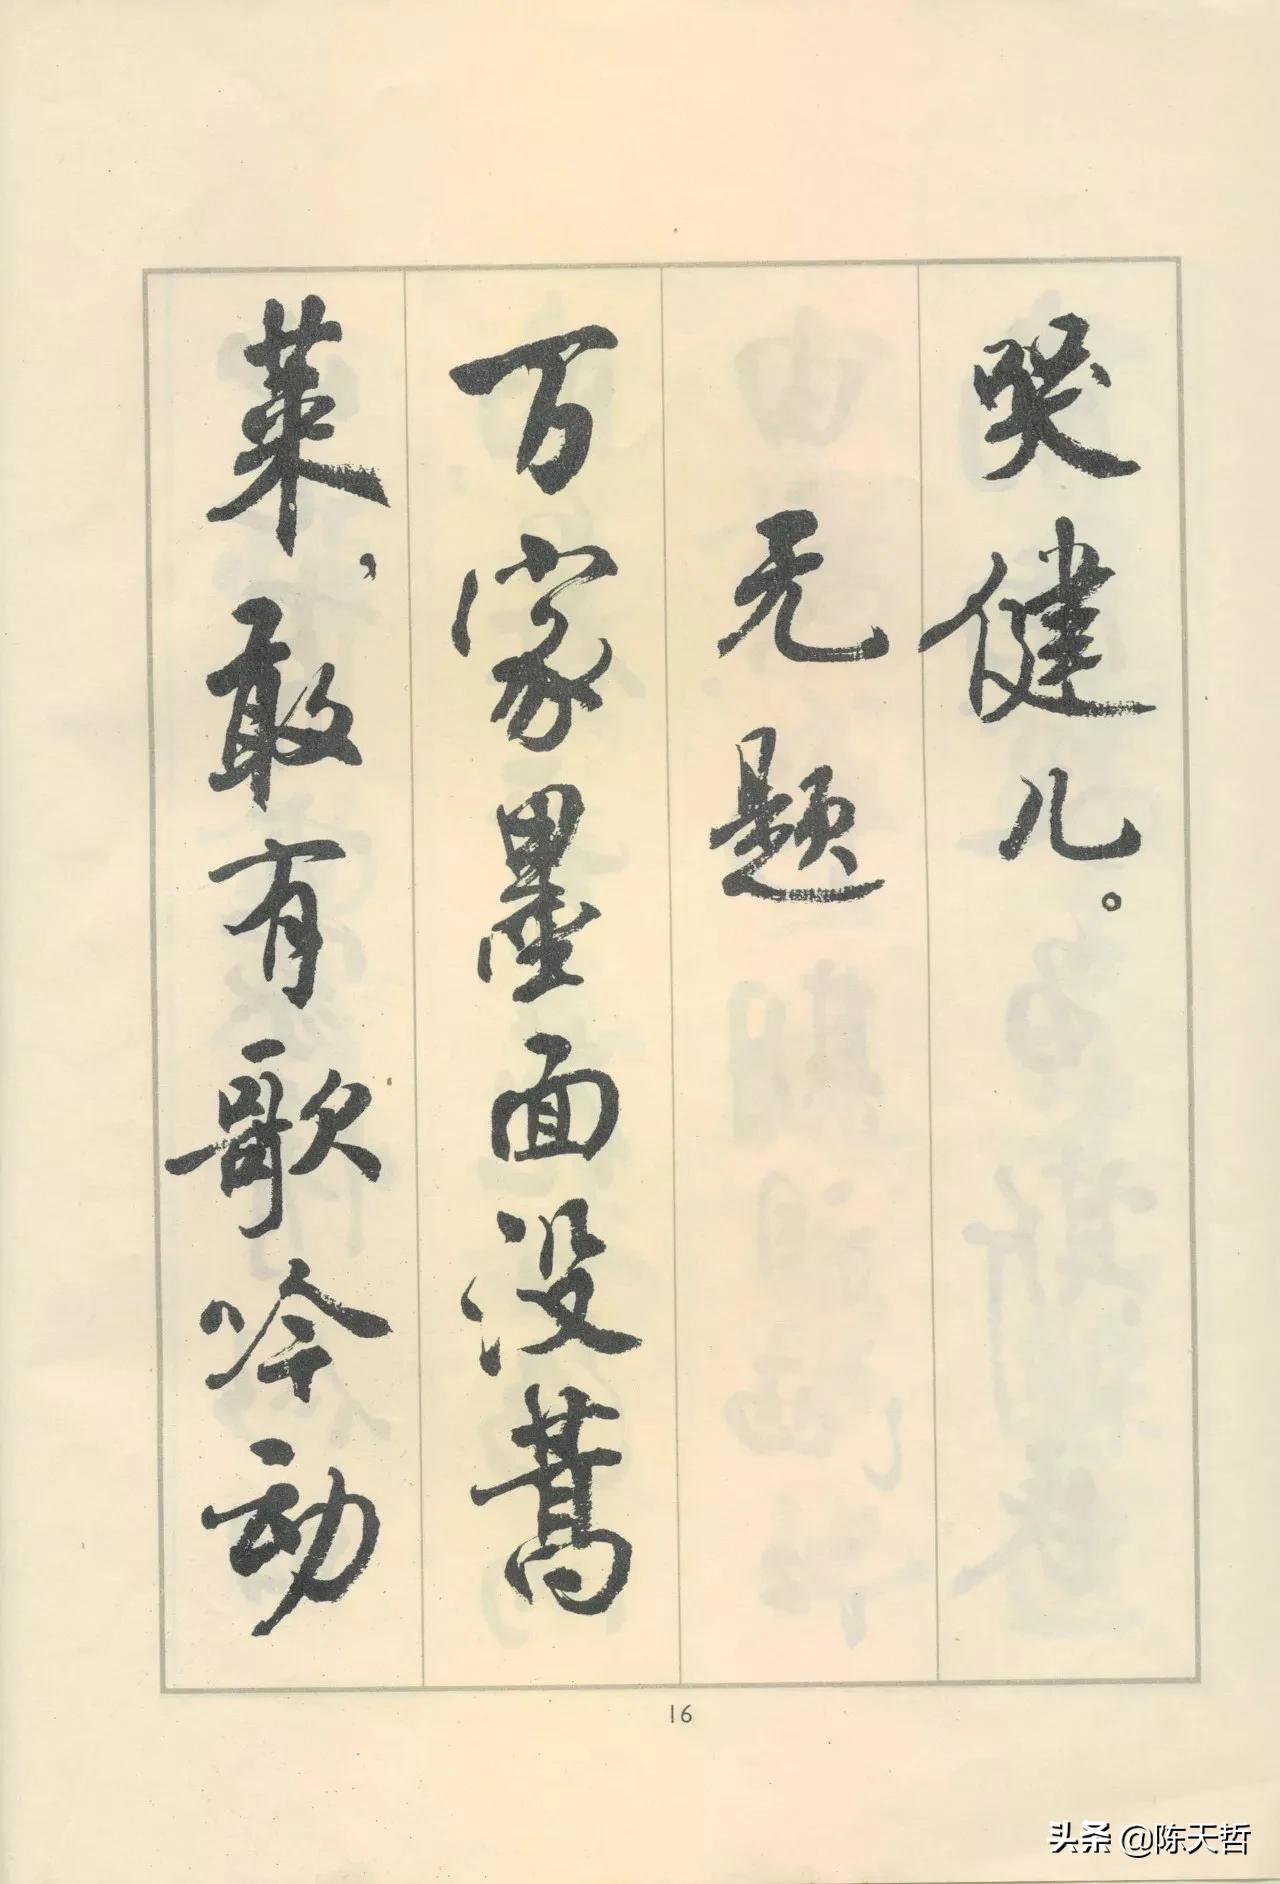 哭健儿。
无题
万家墨面没蒿
莱，敢有歌吟动
16
头条 @陈天哲